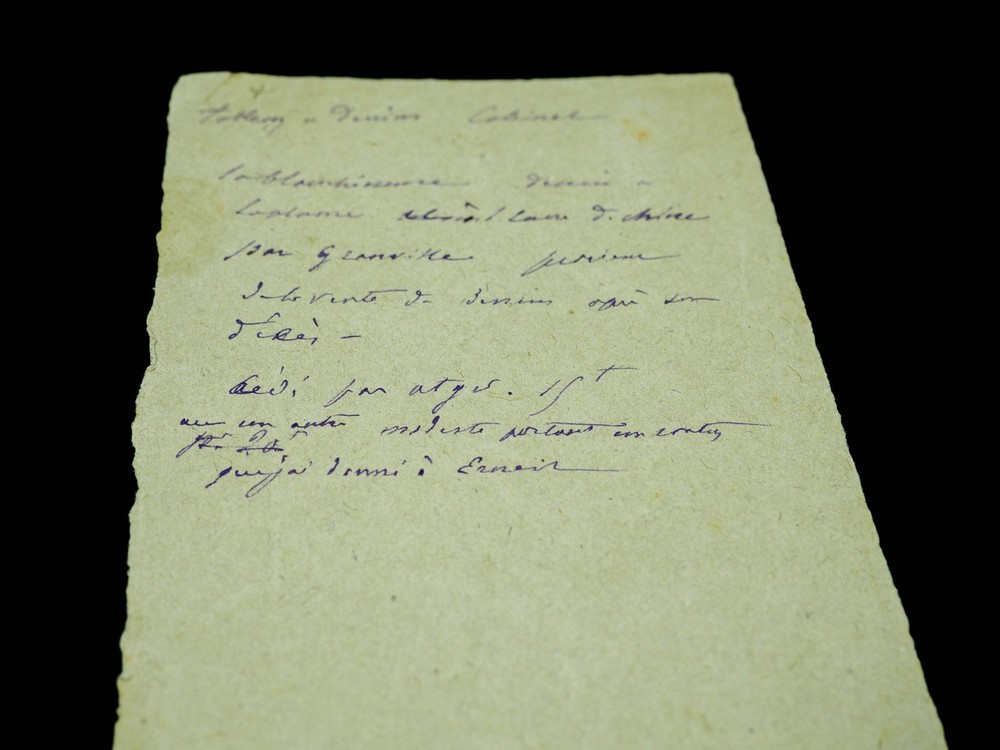 Tableaux & Dessins Cabinet
la blanchisseuse dessin a
la plume de chine
par Granville
de la vente de dessins après son
décès —
cédé par atger. 15 f
avec un autre modeste portant un
que j'ai donné à Ernest